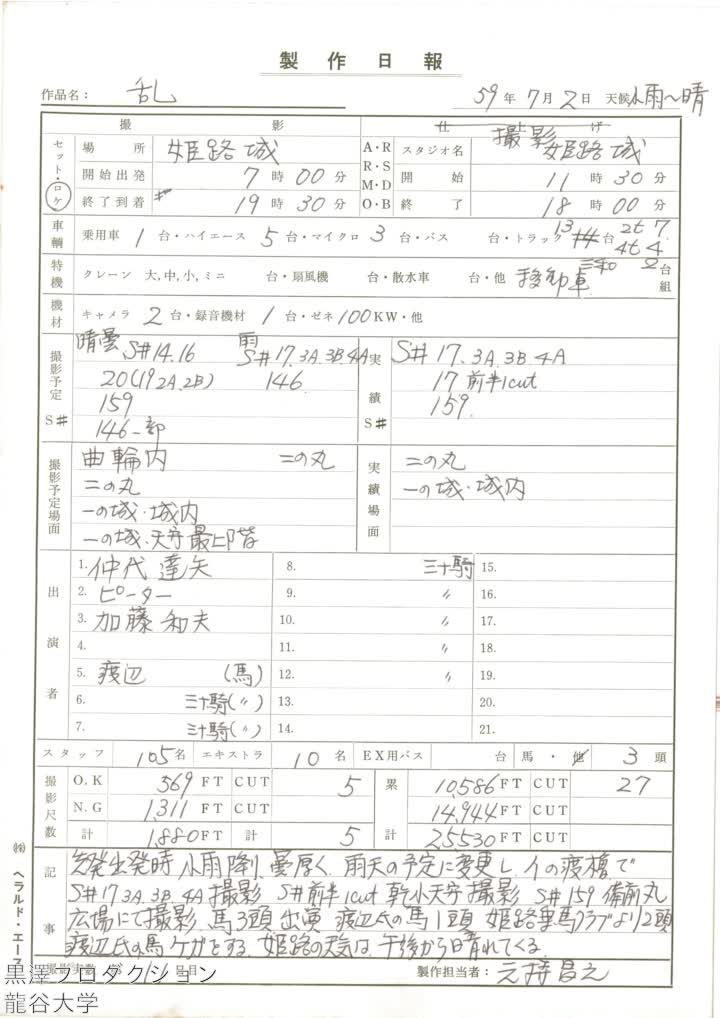 製作日報
作品名： 乱 59年7月2日 天候 小雨〜晴
撮影 仕上げ 撮影
セット・ロケ 場所 姫路城 A・R R・S M・D O・B スタジオ名 姫路城
開始出発 7時00分 開始 11時30分
終了到着 19時30分 終了 18時00分
車輌 乗用車 1台・ハイエース 5台・マイクロ 3台・バス 台・トラック 13台 2t 7 4t 4
特機 クレーン 大,中,小,ミニ 台・扇風機 台・散水車 台・他 移動車 三和 2 台組
機材 キャメラ 2台・録音機材 1台・ゼネ 100KW・他
撮影予定 S# 晴曇 S#14.16 雨 S#17.3A.3B.4A 実績 S# S#17.3A.3B.4A
20(19.2A.2B) 146 17前半1cut
159 159.
146一部
撮影予定場面 曲輪内 二の丸 実績場面 二の丸
二の丸 一の城・城内
一の城・城内
一の城・天守最上階
出演者 1. 仲代達矢 8. 三十騎 15.
2. ピーター 9. 〃 16.
3. 加藤和夫 10. 〃 17.
4. 11. 〃 18.
5. 渡辺 (馬) 12. 〃 19.
6. 三十騎(〃) 13. 20.
7. 三十騎(〃) 14. 21.
スタッフ 105名 エキストラ 10名 EX用バス 台 馬・他 3頭
撮影尺数 O.K 569 FT CUT 5 累計 10,586 FT CUT 27
N.G 1,311 FT CUT 14,944 FT CUT
計 1,880 FT CUT 5 25,530 FT CUT
記事 出発時 小雨降り、曇厚く、雨天の予定に変更し、イの渡櫓で
S#17.3A.3B.4A撮影 S#前半1cut 乾小天守撮影 S#159 備前丸
広場にて撮影、馬3頭出演 渡辺氏の馬1頭 姫路乗馬クラブより2頭
渡辺氏の馬ケガをする、姫路の天気は、午後から晴れてくる。
撮影実数 日目 製作担当者： 元持昌之
㈱ ヘラルド・エース
黒澤プロダクション
龍谷大学